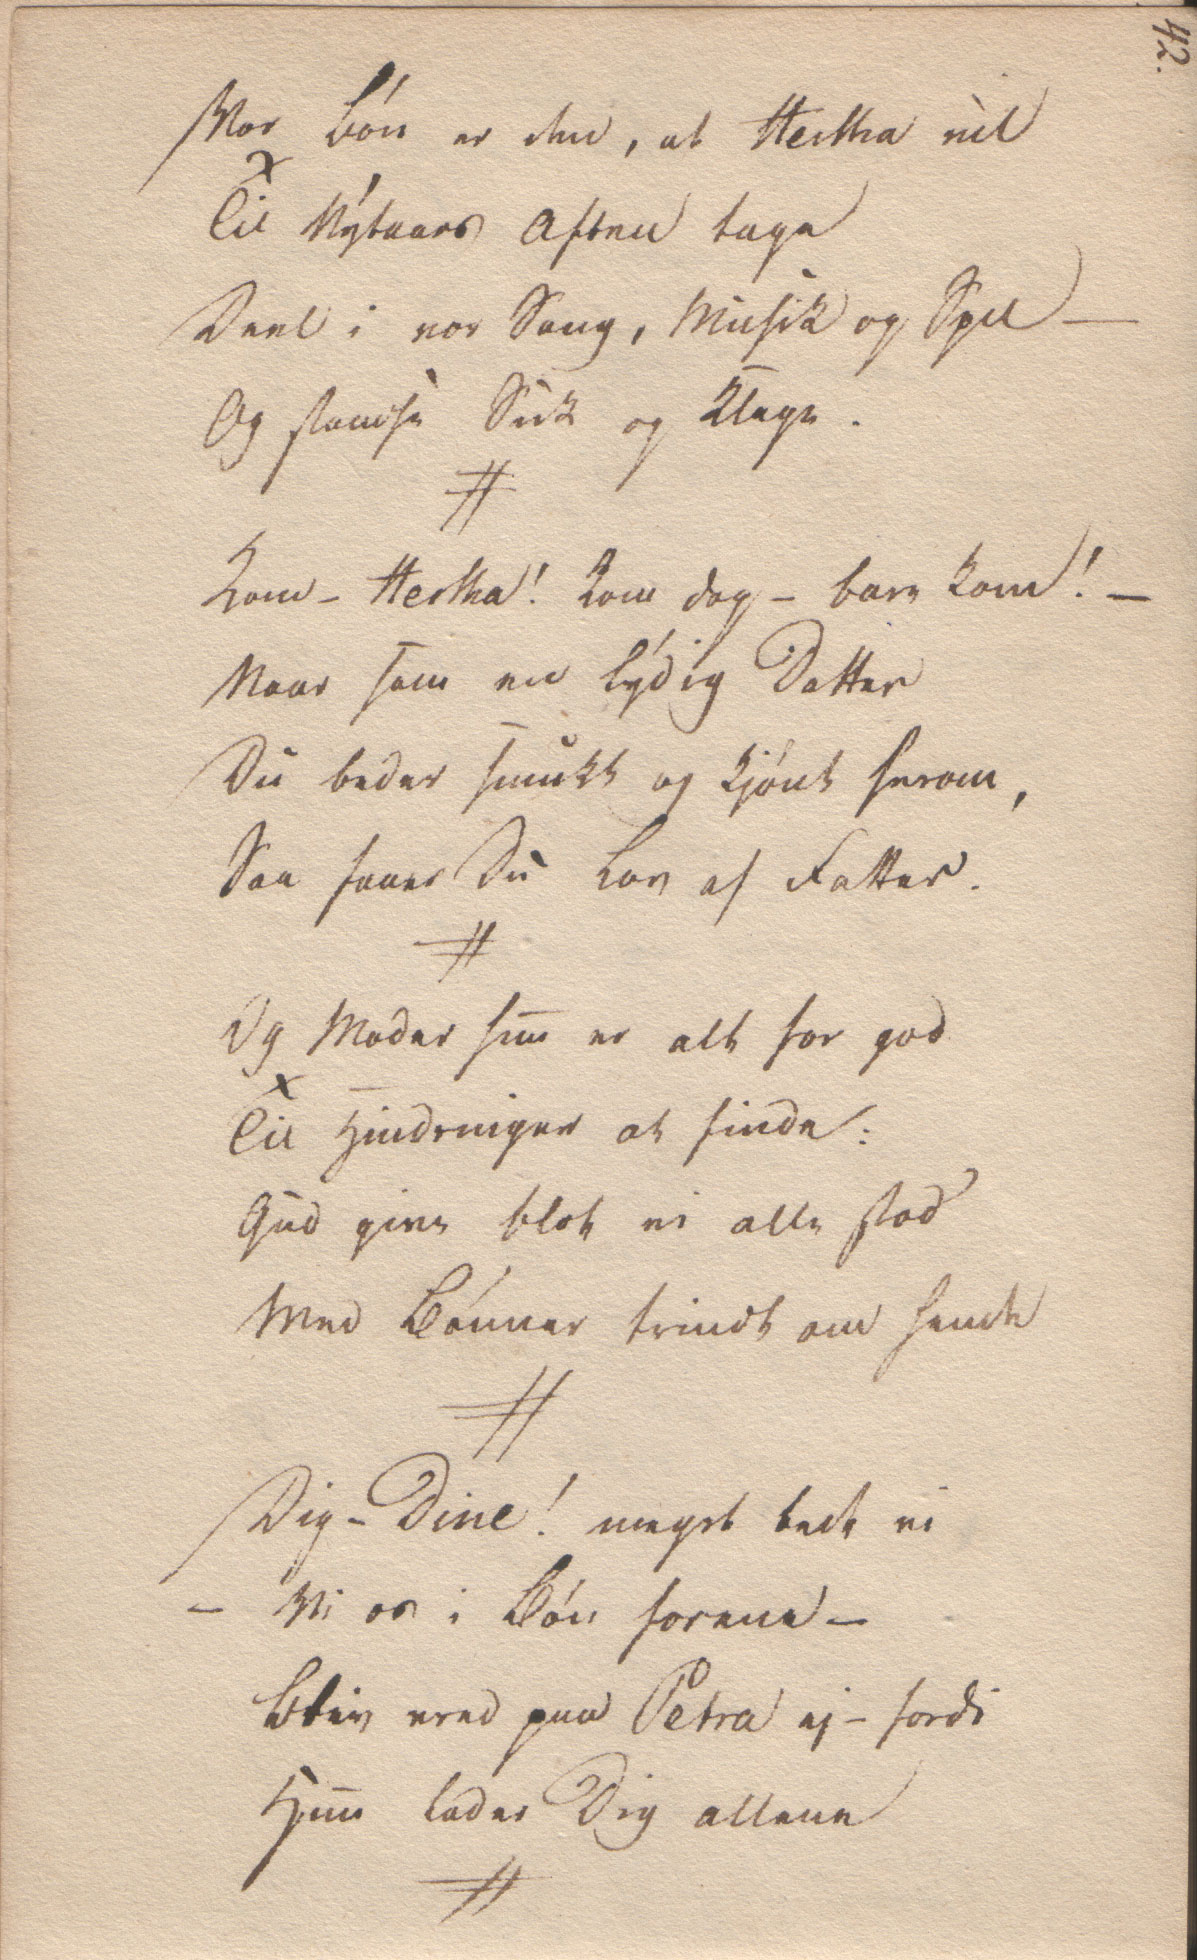 42.
Vor Bön er den, at Hertha vil
Til Nytaars Aften tage
Deel i vor Sang, Musik og Spil —
Og standse Suk og Klage.
Kom – Hertha! kom dog – bare kom! –
Naar som en lydig Datter
Du beder smukt og kjönt herom,
Saa faaer Du Lov af Fatter.
Og Moder hun er alt for god
Til Hindringer at finde:
Gud give blot vi alle stod
Med Bönner trindt om hende
Dig – Dine! meget bede vi
– Vi os i Bön forene –
Bliv vred paa Petra ej – fordi
Hun lader Dig allene